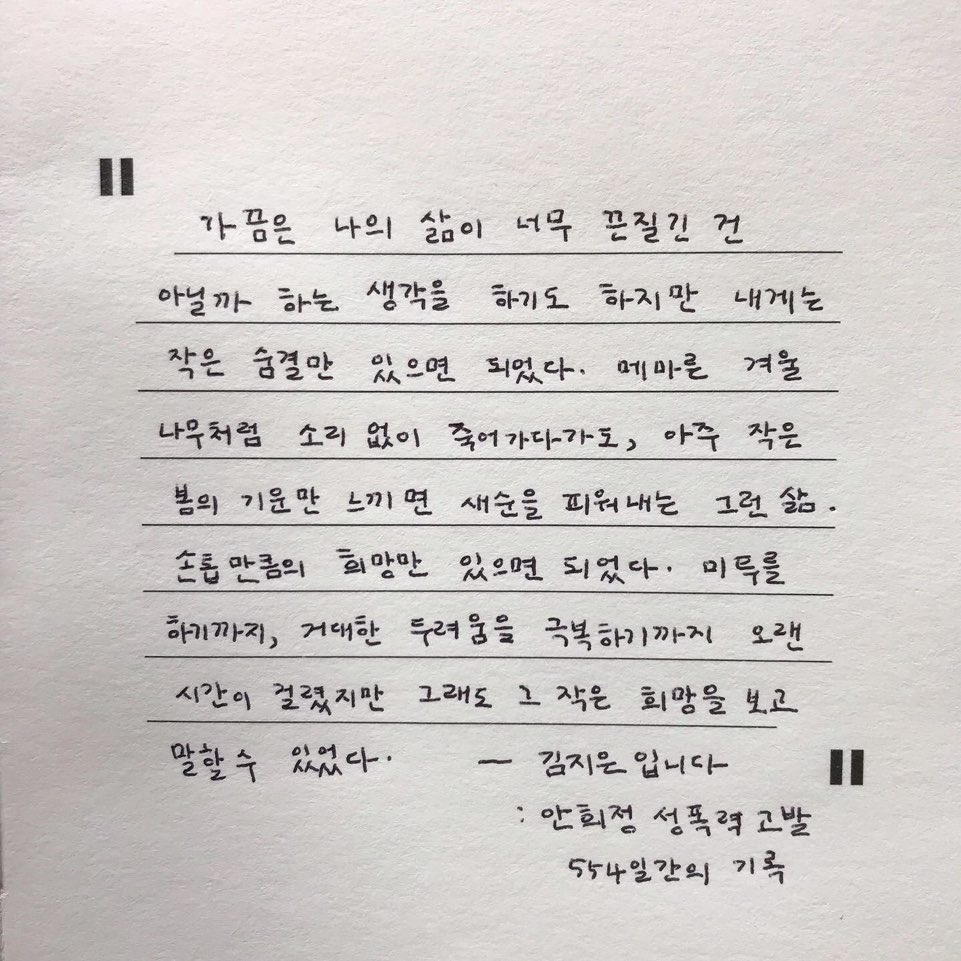 "
가끔은 나의 삶이 너무 끈질긴 건
아닐까 하는 생각을 하기도 하지만 내게는
작은 숨결만 있으면 되었다. 메마른 겨울
나무처럼 소리 없이 죽어가다가도, 아주 작은
봄의 기운만 느끼면 새순을 피워내는 그런 삶.
손톱만큼의 희망만 있으면 되었다. 미투를
하기까지, 거대한 두려움을 극복하기까지 오랜
시간이 걸렸지만 그래도 그 작은 희망을 보고
말할 수 있었다. — 김지은입니다
"
: 안희정 성폭력 고발
554일간의 기록